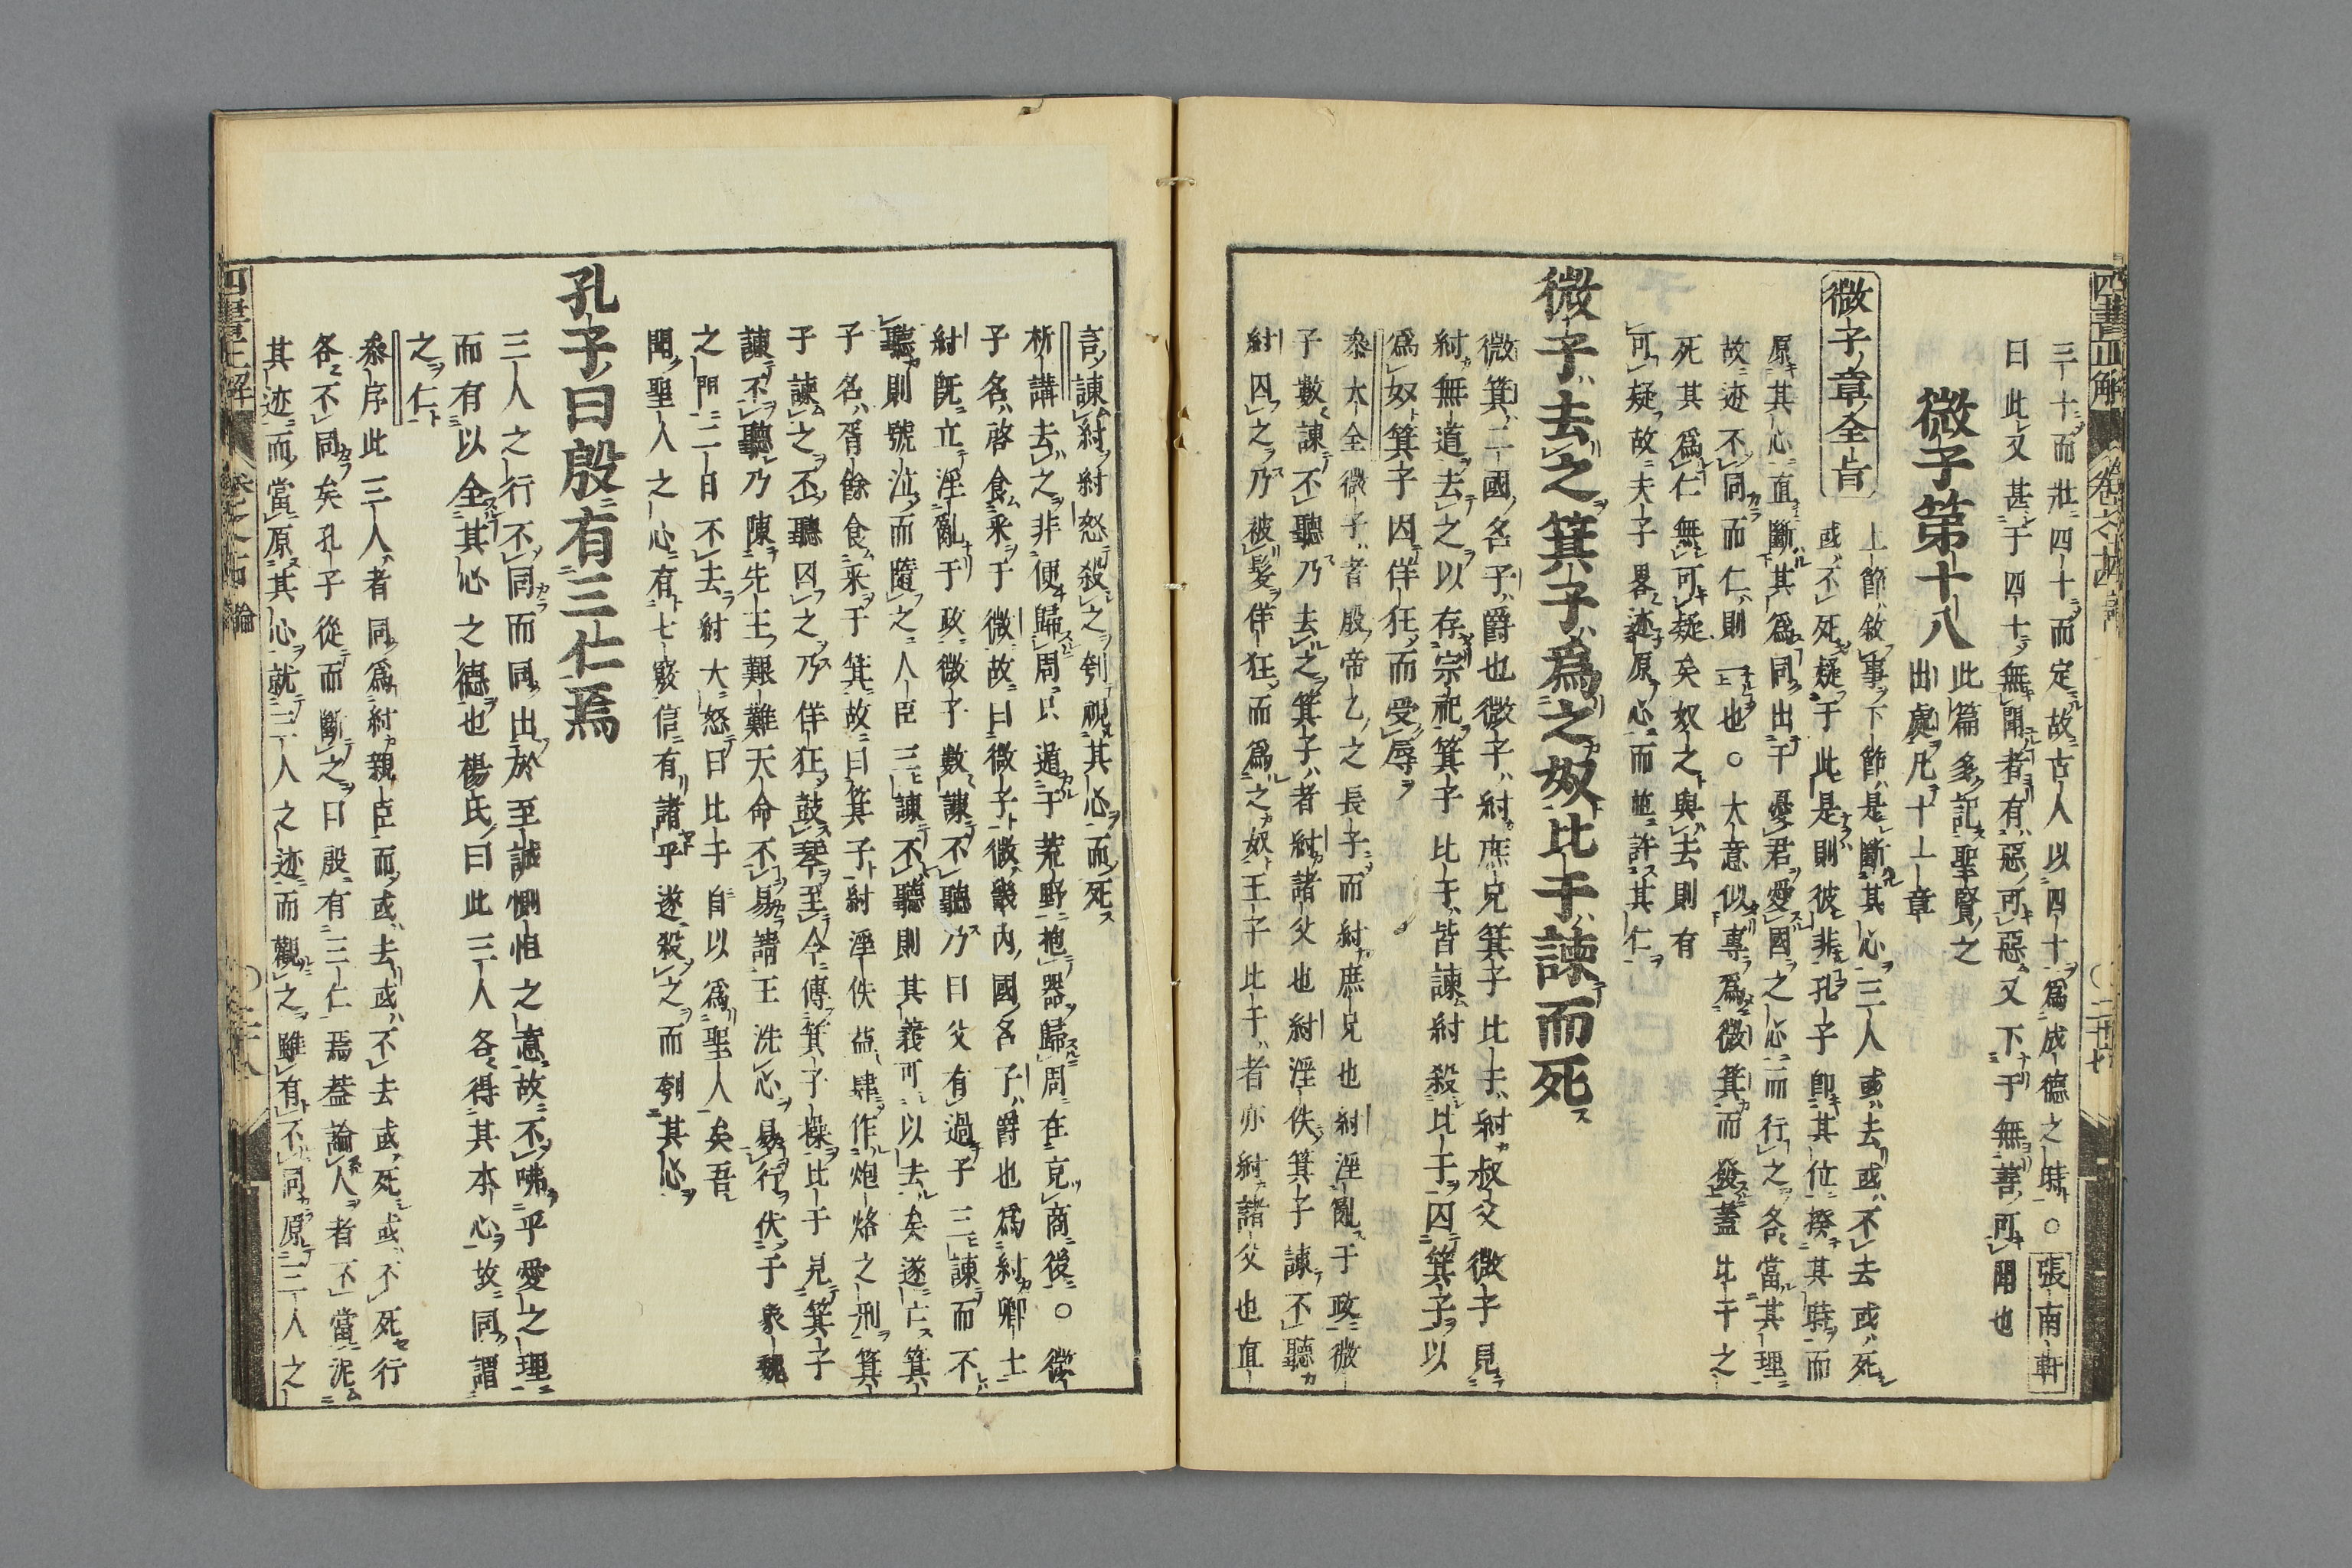 三十而壯四十而定故古人以四十爲成德之時○張南軒
曰此又甚于四十無聞者有惡可惡又下于無善可聞也
微子第十八
此篇多記聖賢之
出處凡十一章
微子章全旨
上節敘事下節是斷其心三人或去或不去或死
或不死疑于此是則彼非孔子卽其位揆其時而
原其心直斷其爲同出于憂君愛國之心而行之各當其理
故迹不同而仁則一也○大意似專爲微箕而發蓋比干之
死其爲仁無可疑矣奴之與去則有
可疑故夫子畧迹原心而並許其仁
微子去之箕子爲之奴比干諫而死
微箕二國名子爵也微子紂庶兄箕子比干紂叔父微子見
紂無道去之以存宗祀箕子比干皆諫紂殺比干囚箕子以
爲奴箕子因佯狂而受辱
叅大全微子者殷帝乙之長子而紂庶兄也紂淫亂于政微
子數諫不聽乃去之箕子者紂諸父也紂淫佚箕子諫不聽
紂囚之乃被髮佯狂而爲之奴王子比干者亦紂諸父也直
言諫紂紂怒殺之刳視其心而死
析講去之非便歸周只遁于荒野抱器歸周在克商後○微
子名啓食采于微故曰微子微畿內國名子爵也爲紂卿士
紂旣立淫亂于政微子數諫不聽乃曰父有過子三諫而不
聽則號泣而隨之人臣三諫不聽則其義可以去矣遂亡箕
子名胥餘食采于箕故曰箕子紂淫佚益肆作炮烙之刑箕
子諫之不聽囚之乃佯狂鼓琴至今傳箕子操比干見箕子
諫不聽乃陳先王艱難天命不易請王洗心易行伏于象魏
之門二日不去紂大怒曰比干自以爲聖人矣吾
聞聖人之心有七竅信有諸乎遂殺之而刳其心
孔子曰殷有三仁焉
三人之行不同而同出於至誠惻怛之意故不咈乎愛之理
而有以全其心之德也楊氏曰此三人各得其本心故同謂
之仁
叅序此三人者同爲紂親臣而或去或不去或死或不死行
各不同矣孔子從而斷之曰殷有三仁焉蓋論人者不當泥
其迹而當原其心就三人之迹而觀之雖有不同原三人之
四書正解
卷之十四
論
二十八
四書正解
卷之十四
二十七